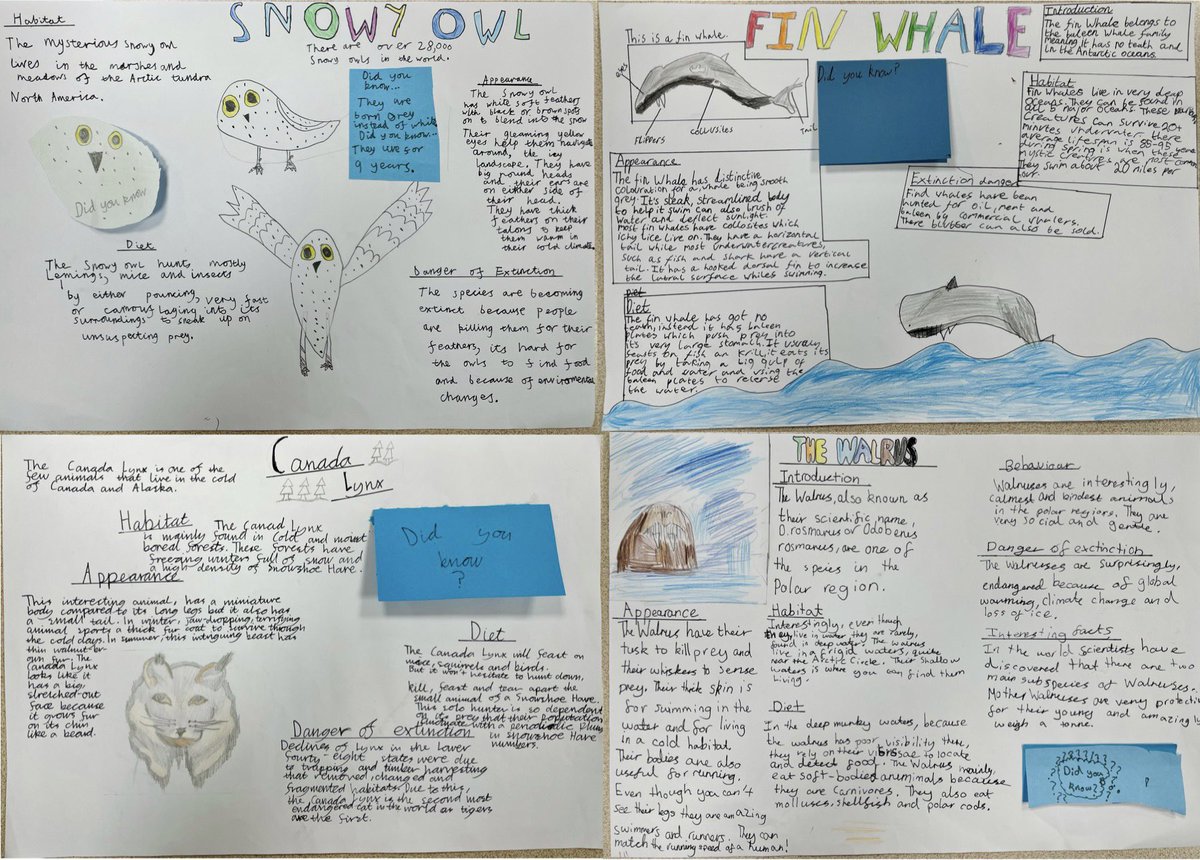 SNOWY OWL
Habitat
The mysterious snowy owl
lives in the marshes and
meadows of the Arctic tundra
North America.
There are over 28,000
Snowy owls in the world.
Did you
know...
They are
born grey
instead of white
Did you know...
They live for
9 years.
Did you know
Appearance
The Snowy owl
has white soft feathers
with black or brown spots
on to blend into the snow
Their gleaming yellow
eyes help them navigate
around, the icy
landscape. They have
big round heads
and their ears are
on either side of
their head.
They have thick
feathers on their
talons to keep
them warm in
their cold climate.
Diet
The Snowy owl hunts mostly
Lemings, mice and insects
by either pouncing, very fast
or camouflaging into its
surroundings to sneak up on
unsuspecting prey.
Danger of Extinction
The species are becoming
extinct because people
are killing them for their
feathers, its hard for
the owls to find food
and because of enviromental
changes.
FIN WHALE
This is a fin whale.
eyes
flippers
collusites
Tail
Did you know?
Introduction
The fin whale belongs to
the baleen whale family
meaning it has no teath and
in the Antarctic oceans.
Habitat
Fin whales live in very deap
oceans. They can be found in
all 5 major oceans. These
Creatures can survive 20+
minutes underwater there
average lifespan is 85-95 years
during spring is when these
mystic creatures are most
They swim about 20 miles per
Appearance
The fin whale has distinctive
colouration for a whale being smooth
grey. It's sleak, streamlined body
to help it swim can also brush of
water and deflect sunlight.
most fin whales have collosites which
ichy lice live on. They have a horizontal
tail while most underwater creatures,
such as fish and shark have a vertical
tail. It has a hooked dorsal fin to increase
the latral surface whiles swimming.
Extinction danger
Find whales have bean
hunted for oil, meat and
baleen by commercial whalers.
There blubber can also be sold.
Diet
The fin whale has got no
teath, instead it has baleen
plates which push prey into
its very large stomach. It usually
feasts on fish an krill, it eats its
prey by taking a big gulp of
food and water and using the
baleen plates to relerse
the water.
Canada
Lynx
The Canada Lynx is one of the
few animals that live in the cold
of Canada and Alaska.
Habitat
The Canad Lynx
is mainly found in cold and moist
boreal forests. These forests have
freezing winters full of snow and
a high density of Snowshoe Hare.
Did you
know
?
Appearance
This interesting animal, has a miniature
body compared to its long legs but it also has
a small tail. In winter, jaw-dropping, terrifying
animal sports a thick fur coat to survive through
the cold days. In summer, this intriguing beast has
thin walnut br-
own fur. The
Canada Lynx
looks like it
has a big
streched-out
face because
it grows fur
on its chin
like a beard.
Diet
The Canada Lynx will feast on
mice, squirrels and birds.
But it won't hesitate to hunt down,
kill, feast and tear apart the
small animal of a Snowshoe Hare.
This solo hunter is so dependent
on its prey that their population
fluctuate with a periodic plung
in snowshoe Hare
numbers.
Danger of extinction
Declines of Lynx in the lower
fourty-eight states were due
to trapping and timber harvesting
that removed, changed and
fragmented habitats. Due to this,
the Canada Lynx is the second most
endangered cat in the world as tigers
are the first.
THE WALRUS
Introduction
The Walrus, also known as
their scientific name,
O.rosmarus or Odobenus
rosmarus, are one of
the species in the
Polar region.
Appearance
The Walrus have their
tusk to kill prey and
their whiskers to sense
prey. Their thick skin is
for swimming in the
water and for living
in a cold habitad.
Their bodies are also
useful for running.
Even though you can't
see their legs they are amazing
swimmers and runners. They can
match the running speed of a human!
Habitat
Interestingly, even though
they, live in water they are rarely,
found in deep water. The walrus
live in a frigid waters, quite
near the Arctic Circle. Their shallow
waters is where you can find them
living.
Diet
In the deep murkey waters, because
the walrus has poor visibility there,
they rely on their vibrssae to locate
and detect food. The Walrus mainly,
eat soft-bodied anumimals because
they are Carnivores. They also eat
molluses, shellfish and polar cods.
Behaviour
Walruses are interestingly,
calmest and kindest animals
in the polar regions. They are
very social and gentle.
Danger of extinction
The Walruses are surprisingly,
endangered because of global
warming, climate change and
loss of ice.
Interesting facts
In the world scientists have
discovered that there are two
main subspecies of Walruses.
Mother Walruses are very protecti
for their young and amazingly
weigh a tonne.
Did you
Know?
?